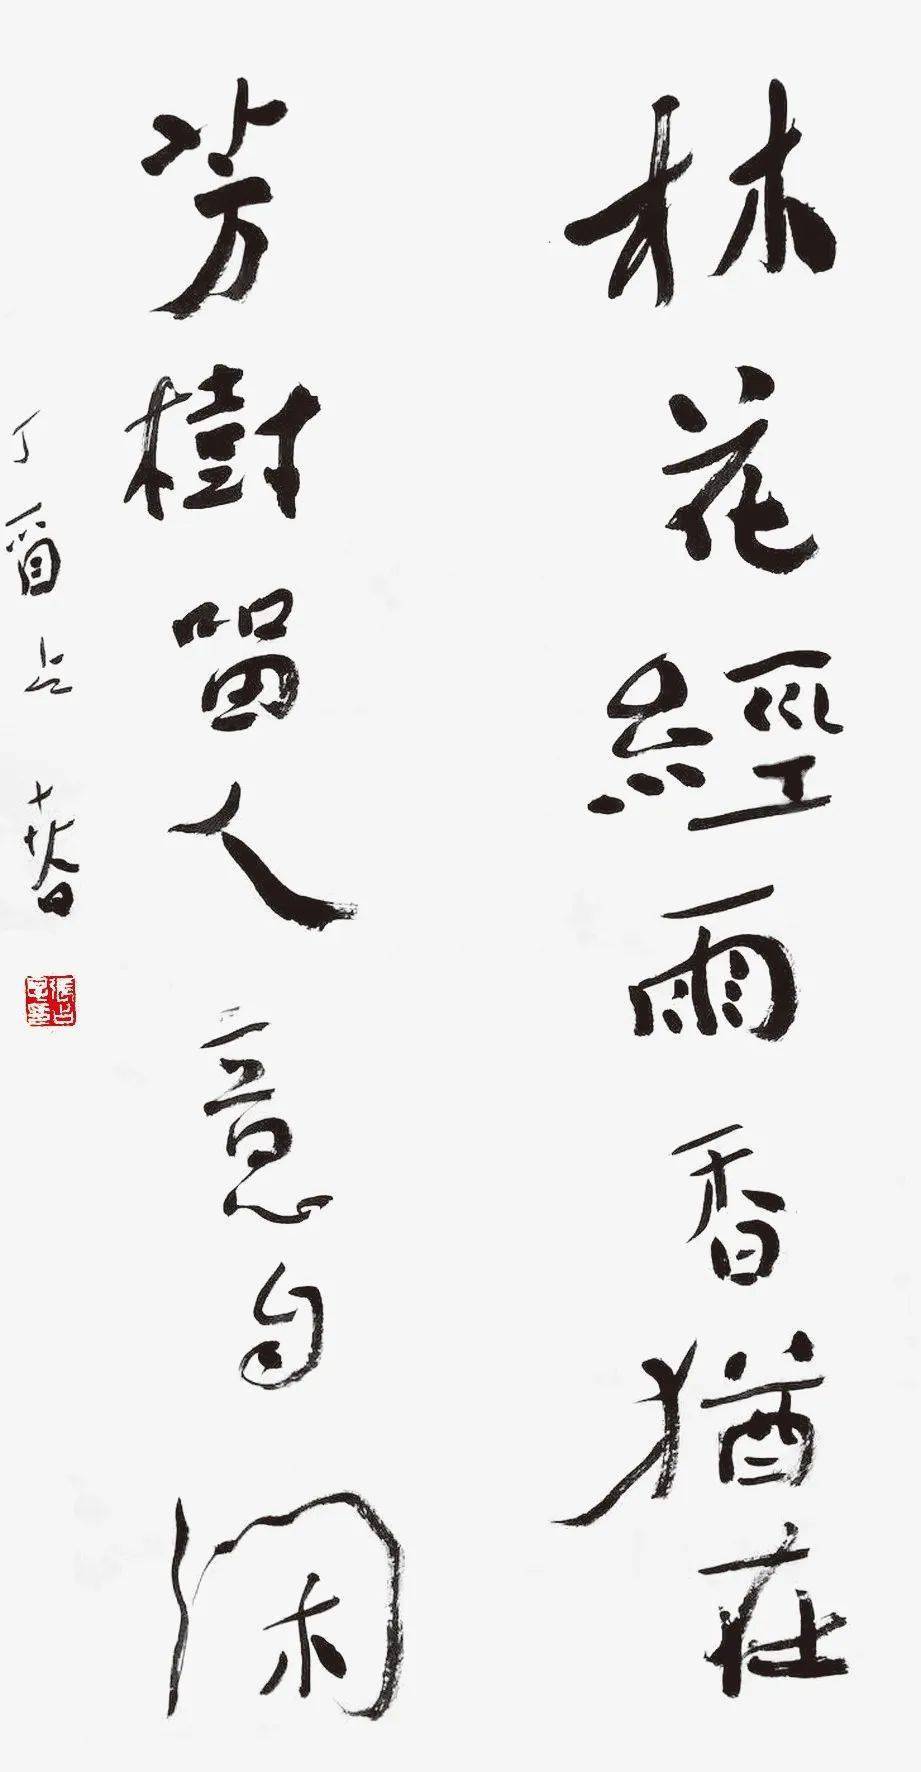 林花經雨香猶在
芳樹留人意自閑
丁酉春